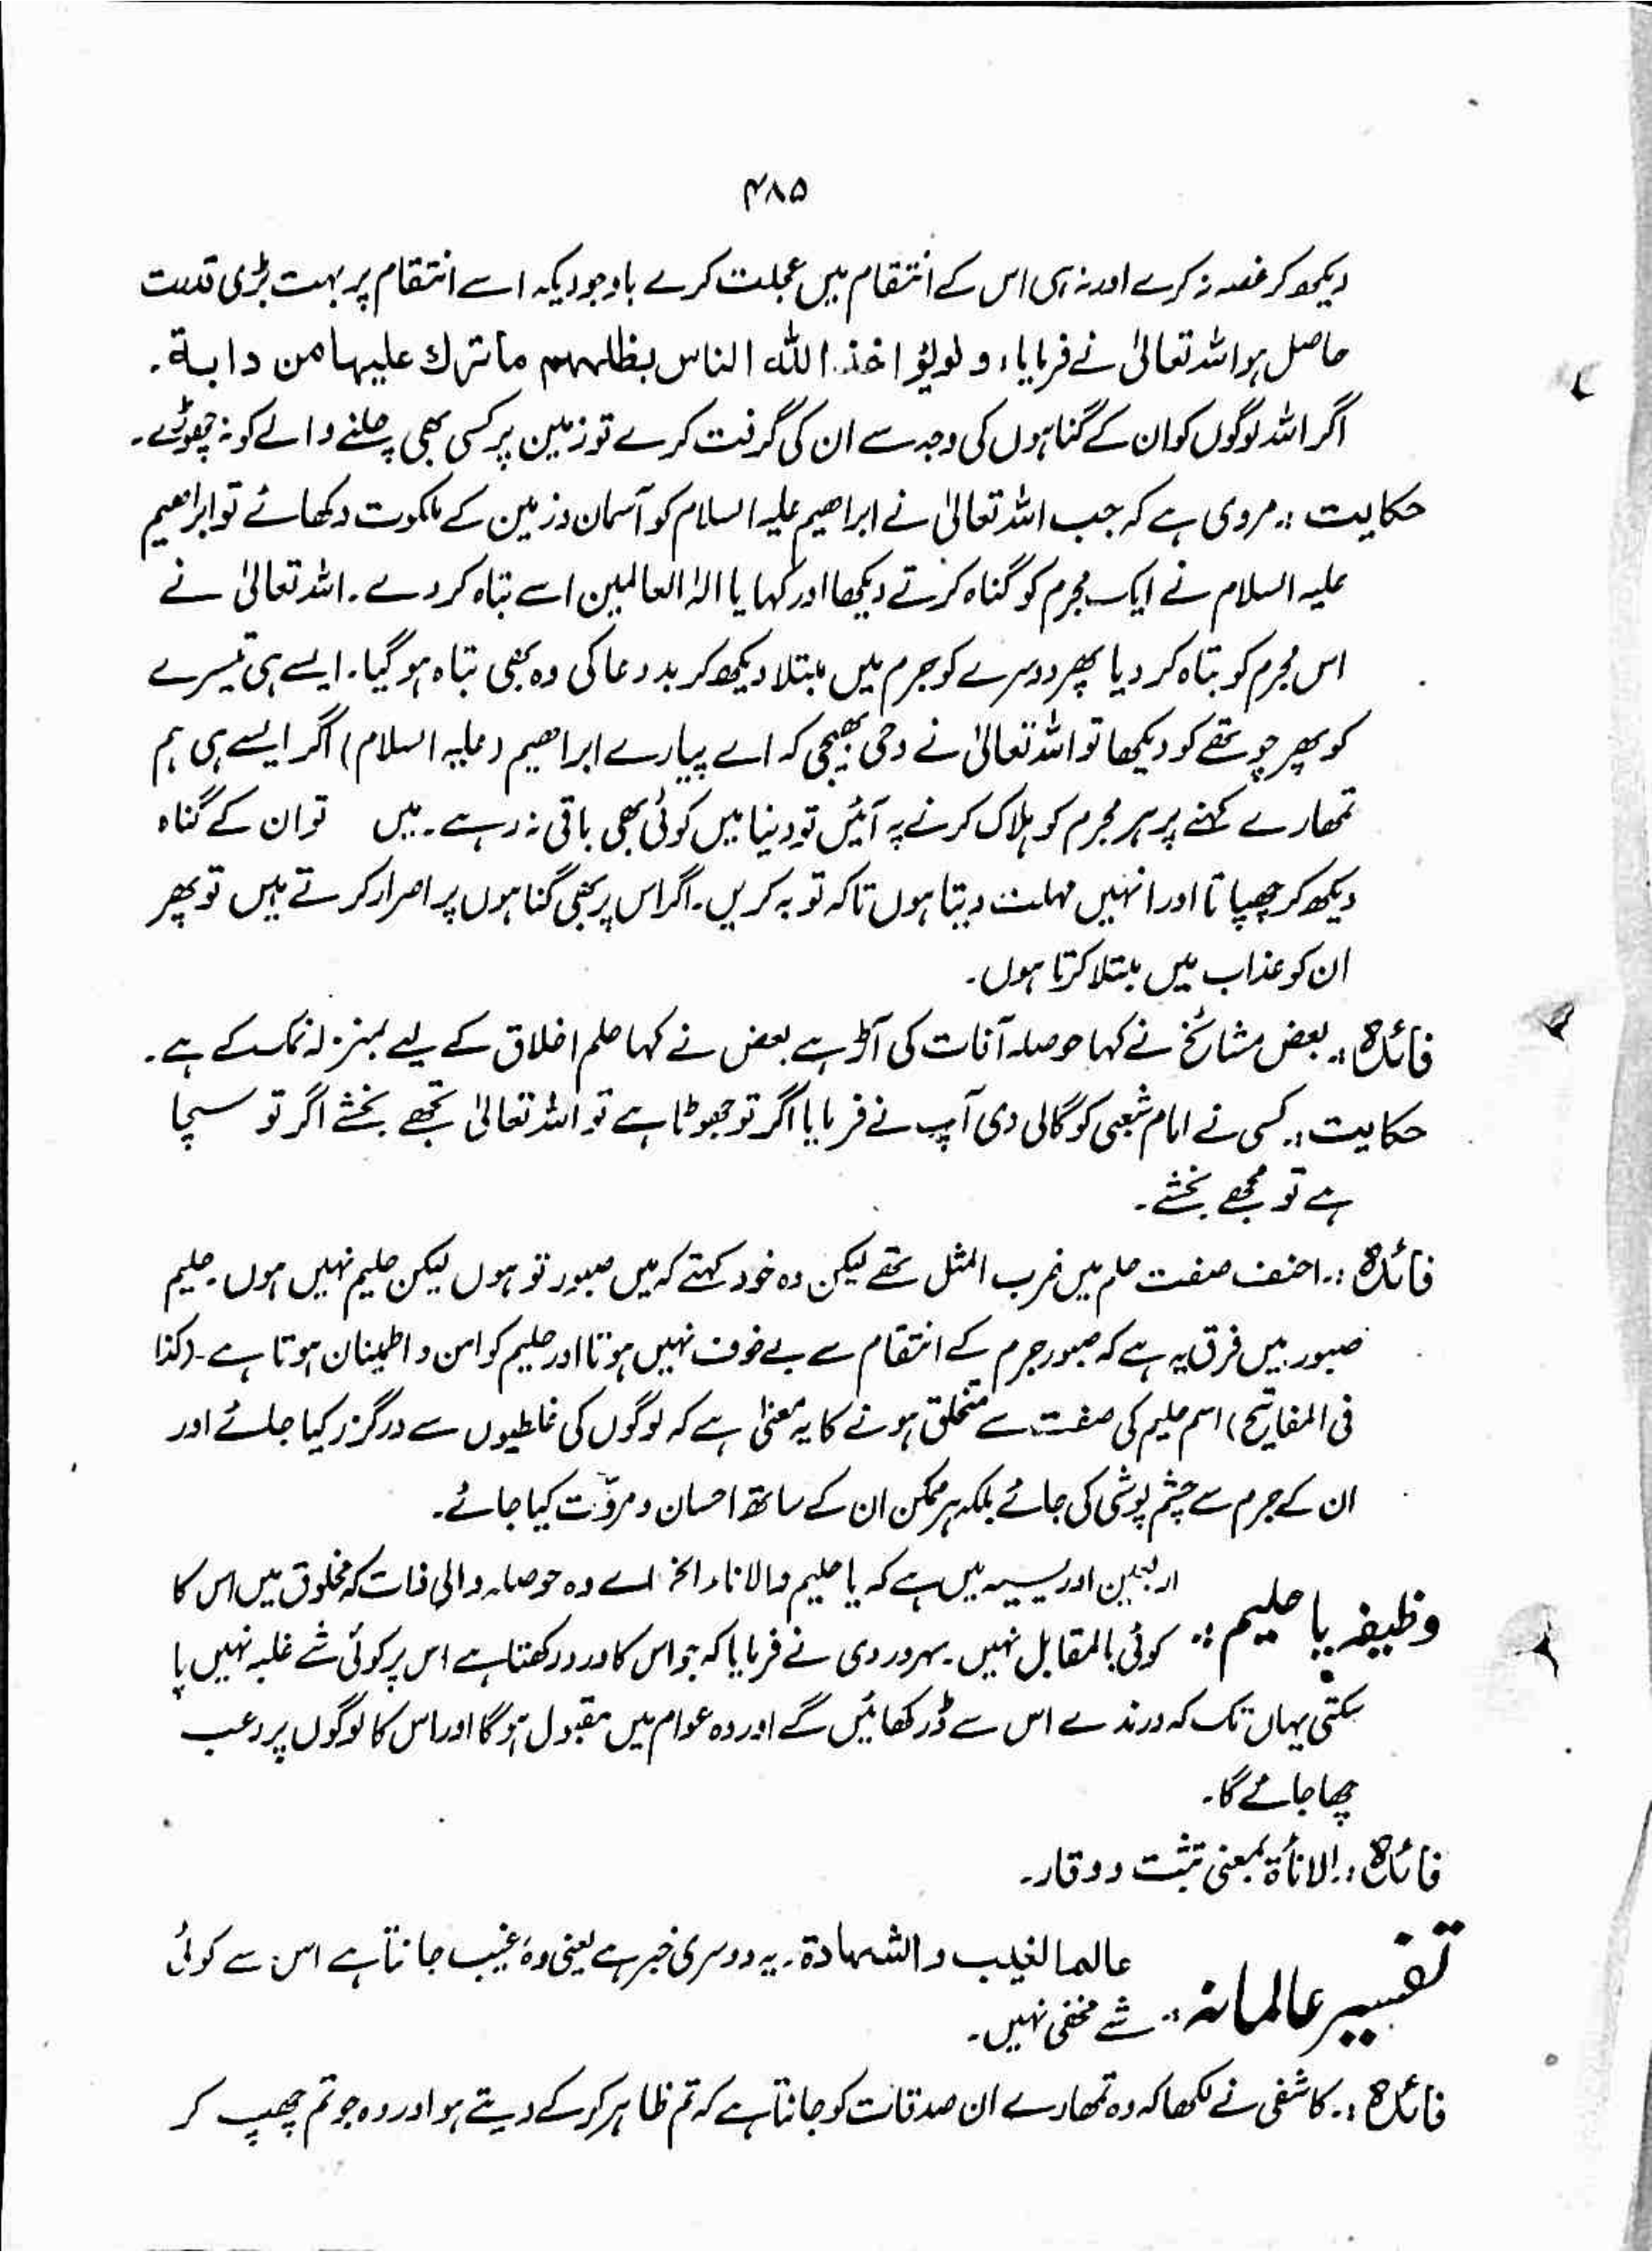 ۴۸۵
دیکھ کر غصہ نہ کرے اور نہ ہی اس کے انتقام میں عجلت کرے باوجودیکہ اسے انتقام پر بہت بڑی قدرت
حاصل ہو اللہ تعالیٰ نے فرمایا، ولو یؤاخذ اللہ الناس بظلمہم ما ترك علیہا من دابة۔
اگر اللہ لوگوں کو ان کے گناہوں کی وجہ سے ان کی گرفت کرے تو زمین پر کسی بھی چلنے والے کو نہ چھوڑے۔
حکایت :۔ مروی ہے کہ جب اللہ تعالیٰ نے ابراھیم علیہ السلام کو آسمان و زمین کے ملکوت دکھائے تو ابراھیم
علیہ السلام نے ایک مجرم کو گناہ کرتے دیکھا اور کہا یا الہٰ العالمین اسے تباہ کر دے۔ اللہ تعالیٰ نے
اس مجرم کو تباہ کر دیا پھر دوسرے کو جرم میں مبتلا دیکھ کر بد دعا کی وہ بھی تباہ ہو گیا۔ ایسے ہی تیسرے
کو پھر چوتھے کو دیکھا تو اللہ تعالیٰ نے وحی بھیجی کہ اے پیارے ابراھیم (علیہ السلام) اگر ایسے ہی ہم
تمھارے کہنے پر ہر مجرم کو ہلاک کرنے پہ آئیں تو دنیا میں کوئی بھی باقی نہ رہے۔ میں تو ان کے گناہ
دیکھ کر چھپاتا اور انہیں مہلت دیتا ہوں تاکہ توبہ کریں۔ اگر اس پر بھی گناہوں پر اصرار کرتے ہیں تو پھر
ان کو عذاب میں مبتلا کرتا ہوں۔
فائدہ :۔ بعض مشائخ نے کہا حوصلہ آفات کی آڑ ہے بعض نے کہا حلم اخلاق کے لیے بمنزلہ نمک کے ہے۔
حکایت :۔ کسی نے امام شعبی کو گالی دی آپ نے فرمایا اگر تو جھوٹا ہے تو اللہ تعالیٰ تجھے بخشے اگر تو سچا
ہے تو مجھے بخشے۔
فائدہ :۔ احنف صفت حلم میں ضرب المثل تھے لیکن وہ خود کہتے کہ میں صبور تو ہوں لیکن حلیم نہیں ہوں۔ حلیم
صبور میں فرق یہ ہے کہ صبور جرم کے انتقام سے بے خوف نہیں ہوتا اور حلیم کو امن و اطمینان ہوتا ہے۔ (کذا
فی المفاتیح) اسم حلیم کی صفت سے متخلق ہونے کا یہ معنیٰ ہے کہ لوگوں کی غلطیوں سے درگزر کیا جائے اور
ان کے جرم سے چشم پوشی کی جائے بلکہ ہر ممکن ان کے ساتھ احسان و مروّت کیا جائے۔
وظیفہ یا حلیم :۔ اربعین ادریسیہ میں ہے کہ یا حلیم ذا الاناء الخ اے وہ حوصلہ والی ذات کہ مخلوق میں اس کا
کوئی بالمقابل نہیں۔ سہروردی نے فرمایا کہ جو اس کا ورد رکھتا ہے اس پر کوئی شے غلبہ نہیں پا
سکتی یہاں تک کہ درندے اس سے ڈر کھائیں گے اور وہ عوام میں مقبول ہو گا اور اس کا لوگوں پر رعب
چھا جائے گا۔
فائدہ :۔ الاناۃ بمعنی تثبت و وقار۔
تفسیر عالمانہ :۔ عالم الغیب و الشھادۃ۔ یہ دوسری خبر ہے یعنی وہ غیب جانتا ہے اس سے کوئی
شے مخفی نہیں۔
فائدہ :۔ کاشفی نے لکھا کہ وہ تمھارے ان صدقات کو جانتا ہے کہ تم ظاہر کر کے دیتے ہو اور وہ جو تم چھپ کر